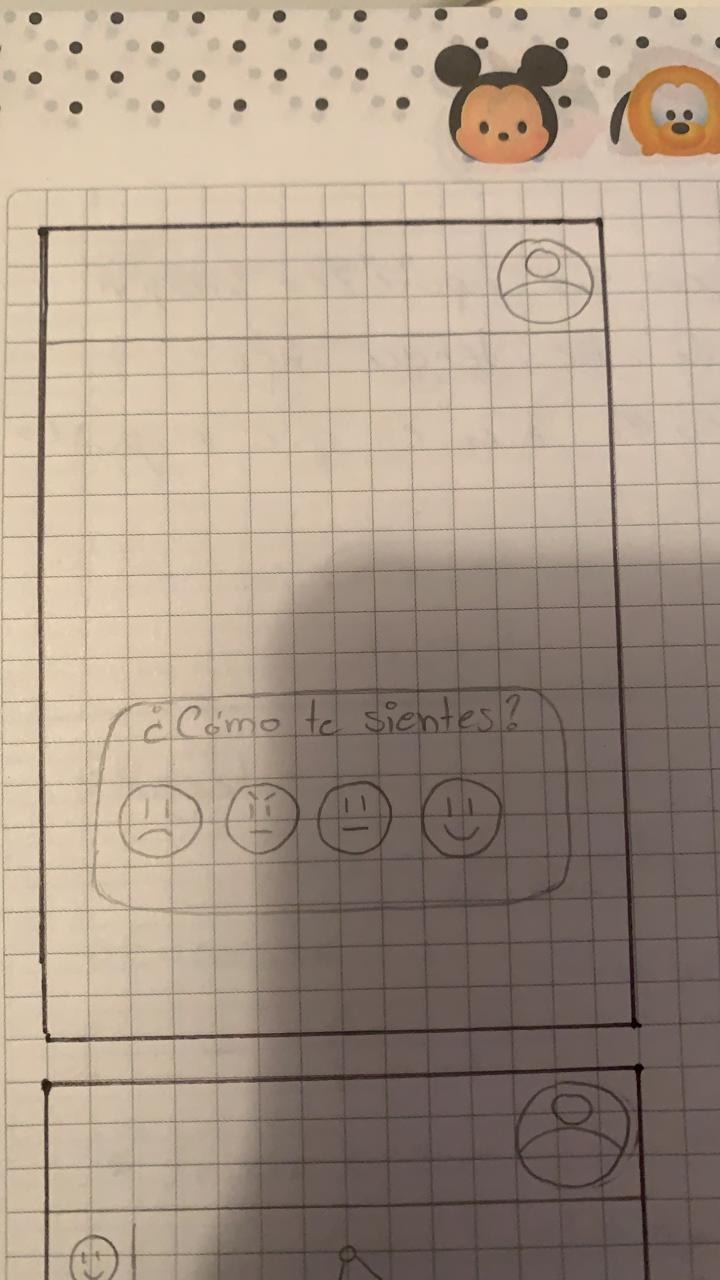 ¿Cómo te sientes?